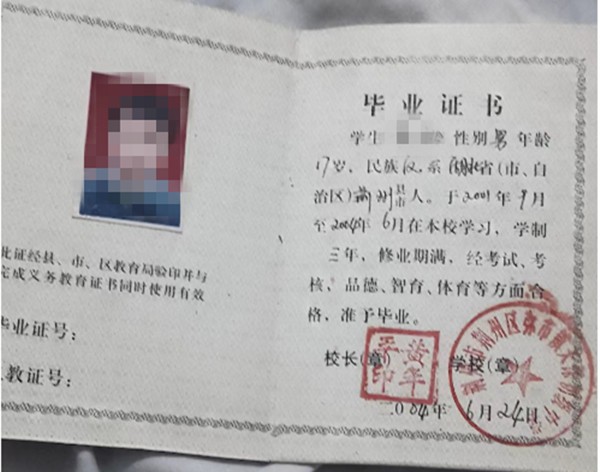 此证经县、市、区教育局验印并与
完成义务教育证书同时使用有效
毕业证号：
教证号：
毕业证书
学生 性别男年龄
17岁，民族汉，系湖北省(市、自
治区)荆州县市人。于2001年9月
至2004年6月在本校学习，学制
三年，修业期满，经考试、考
核，品德、智育、体育等方面合
格，准予毕业。
校长(章) 学校(章)
黄平
平印
二〇04年6月24日